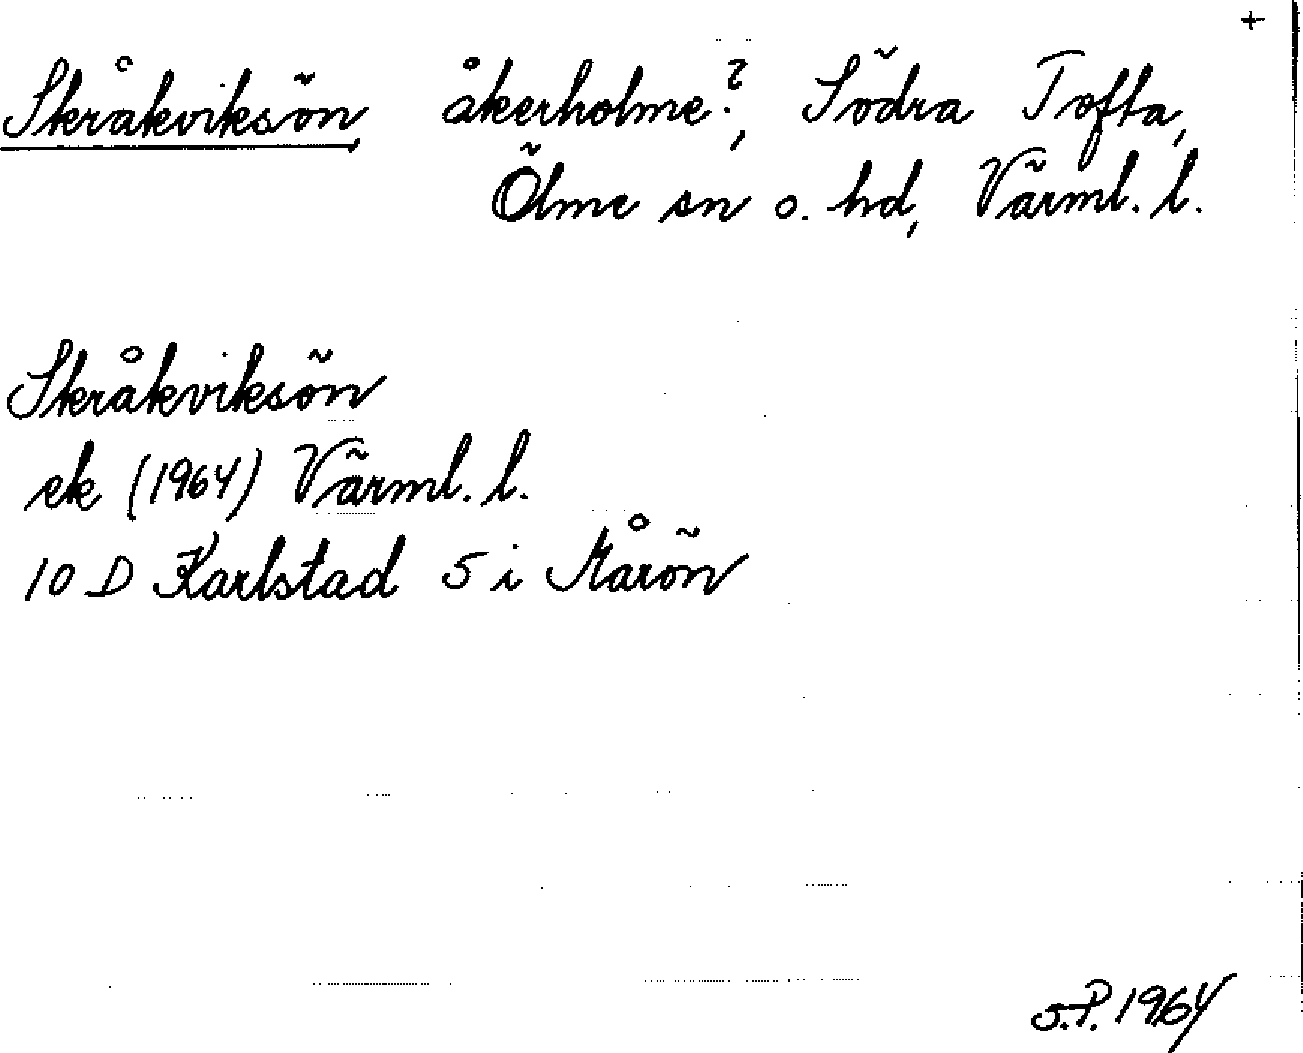 +
Skråkviksön, åkerholme?, Södra Tofta,
Ölme sn o. hd, Värml. l.
Skråkviksön
ek (1964) Värml. l.
10 D Karlstad 5 i Mårön
S.P. 1964